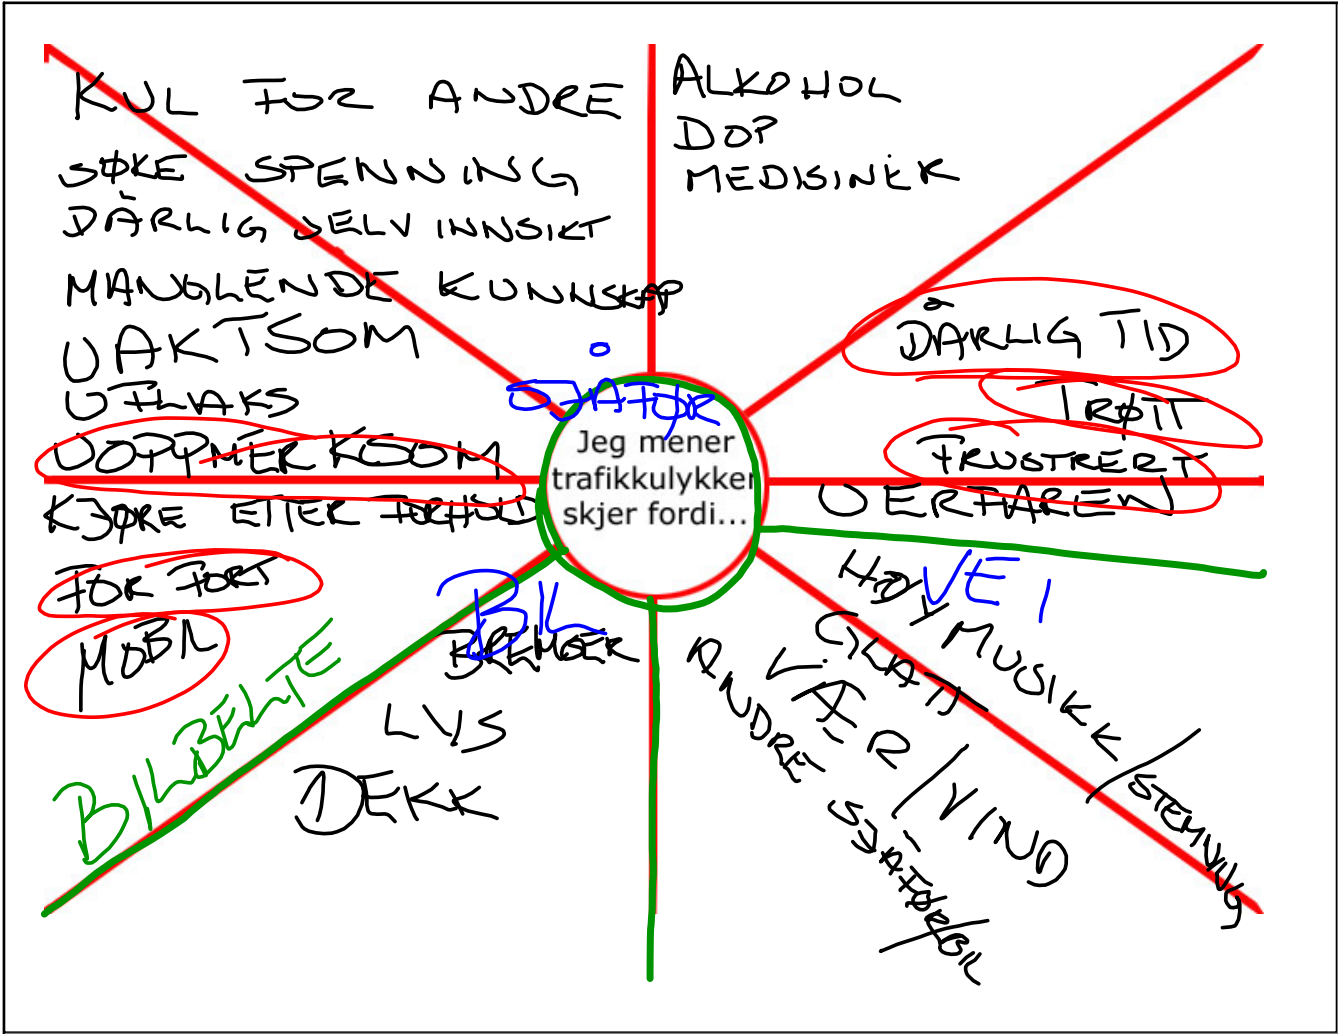 KUL FOR ANDRE
SØKE SPENNING
DÅRLIG SELV INNSIKT
MANGLENDE KUNNSKAP
UAKTSOM
UFLAKS
UOPPMERKSOM
KJØRE ETTER FORHOLD
FOR FORT
MOBIL
BILBELTE
ALKOHOL
DOP
MEDISINER
DÅRLIG TID
TRØTT
FRUSTRERT
UERFAREN
SJÅFØR
Jeg mener
trafikkulykker
skjer fordi...
BIL
BREMSER
LYS
DEKK
VEI
HØY MUSIKK/STEMNING
GLATT
VÆR/VIND
ANDRE SJÅFØR/BIL